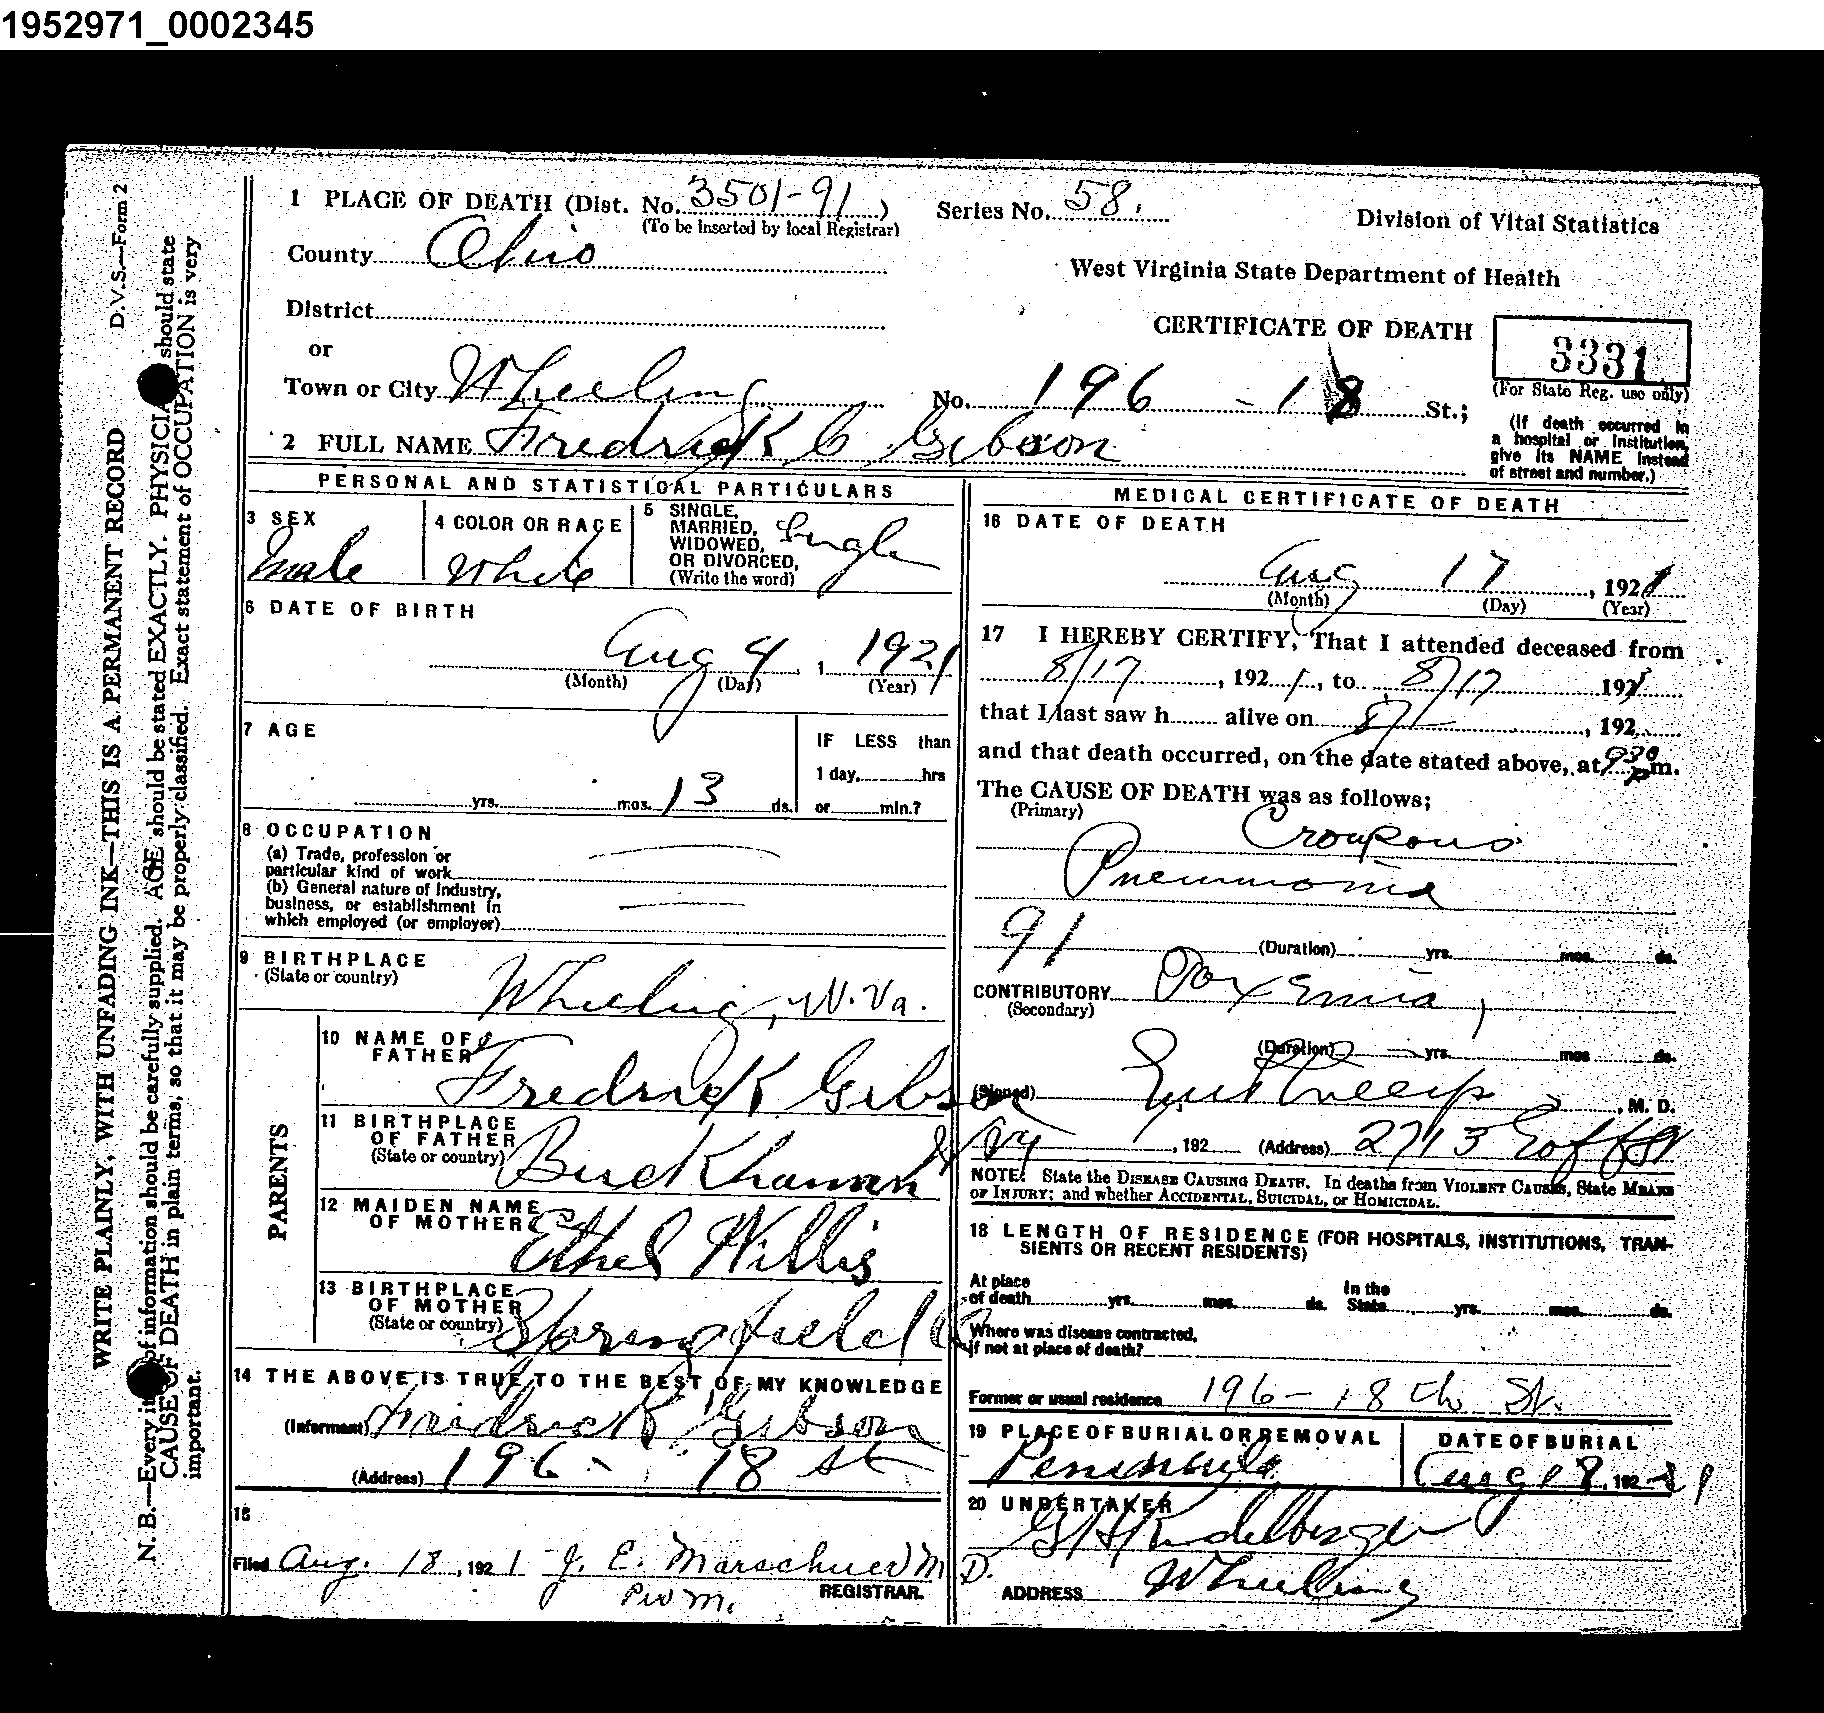 1952971_0002345
D.V.S.—Form 2
WRITE PLAINLY, WITH UNFADING INK—THIS IS A PERMANENT RECORD
N. B.—Every it of information should be carefully supplied. AGE should be stated EXACTLY. PHYSICIA should state
CAUSE OF DEATH in plain terms, so that it may be properly classified. Exact statement of OCCUPATION is very
important.
1 PLACE OF DEATH (Dist. No. 3501-91) Series No. 58.
(To be inserted by local Registrar)
Division of Vital Statistics
County Ohio
West Virginia State Department of Health
District
CERTIFICATE OF DEATH
3331
(For State Reg. use only)
or
Town or City Wheeling No. 196 - 18 St.;
(If death occurred in
a hospital or institution,
give its NAME instead
of street and number.)
2 FULL NAME Fredrick C Gibson
PERSONAL AND STATISTICAL PARTICULARS
3 SEX
Male
4 COLOR OR RACE
White
5 SINGLE,
MARRIED,
WIDOWED,
OR DIVORCED,
(Write the word)
Single
6 DATE OF BIRTH
Aug 4, 1921
(Month) (Day) (Year)
7 AGE
yrs. mos. 13 ds.
IF LESS than
1 day, hrs
or min.?
8 OCCUPATION
(a) Trade, profession or
particular kind of work
(b) General nature of industry,
business, or establishment in
which employed (or employer)
9 BIRTHPLACE
(State or country)
Wheeling, W. Va.
PARENTS
10 NAME OF
FATHER
Fredrick Gibson
11 BIRTHPLACE
OF FATHER
(State or country)
Buckhannon W Va
12 MAIDEN NAME
OF MOTHER
Ethel Willis
13 BIRTHPLACE
OF MOTHER
(State or country)
Springfield O
14 THE ABOVE IS TRUE TO THE BEST OF MY KNOWLEDGE
(Informant) Fredrick Gibson
(Address) 196 - 18 St
15
Filed Aug. 18, 1921 J. E. Marschner M D.
REGISTRAR.
MEDICAL CERTIFICATE OF DEATH
16 DATE OF DEATH
Aug 17, 1921
(Month) (Day) (Year)
17 I HEREBY CERTIFY, That I attended deceased from
8/17, 1921, to 8/17 1921
that I last saw h alive on 8/, 192
and that death occurred, on the date stated above, at 930 P m.
The CAUSE OF DEATH was as follows;
(Primary)
Croupous
Pneumonia
91
(Duration) yrs. mos. ds.
CONTRIBUTORY Toxemia,
(Secondary)
(Duration) yrs. mos. ds.
(Signed) , M. D.
, 192 (Address) 2713 Eoff St
NOTE: State the DISEASE CAUSING DEATH. In deaths from VIOLENT CAUSES, State MEANS
OF INJURY; and whether ACCIDENTAL, SUICIDAL, or HOMICIDAL.
18 LENGTH OF RESIDENCE (FOR HOSPITALS, INSTITUTIONS, TRAN-
SIENTS OR RECENT RESIDENTS)
At place
of death yrs. mos. ds.
In the
State yrs. mos. ds.
Where was disease contracted,
if not at place of death?
Former or usual residence 196 - 18 th St.
19 PLACE OF BURIAL OR REMOVAL
Peninsula
DATE OF BURIAL
Aug 18, 1921
20 UNDERTAKER
ADDRESS Wheeling